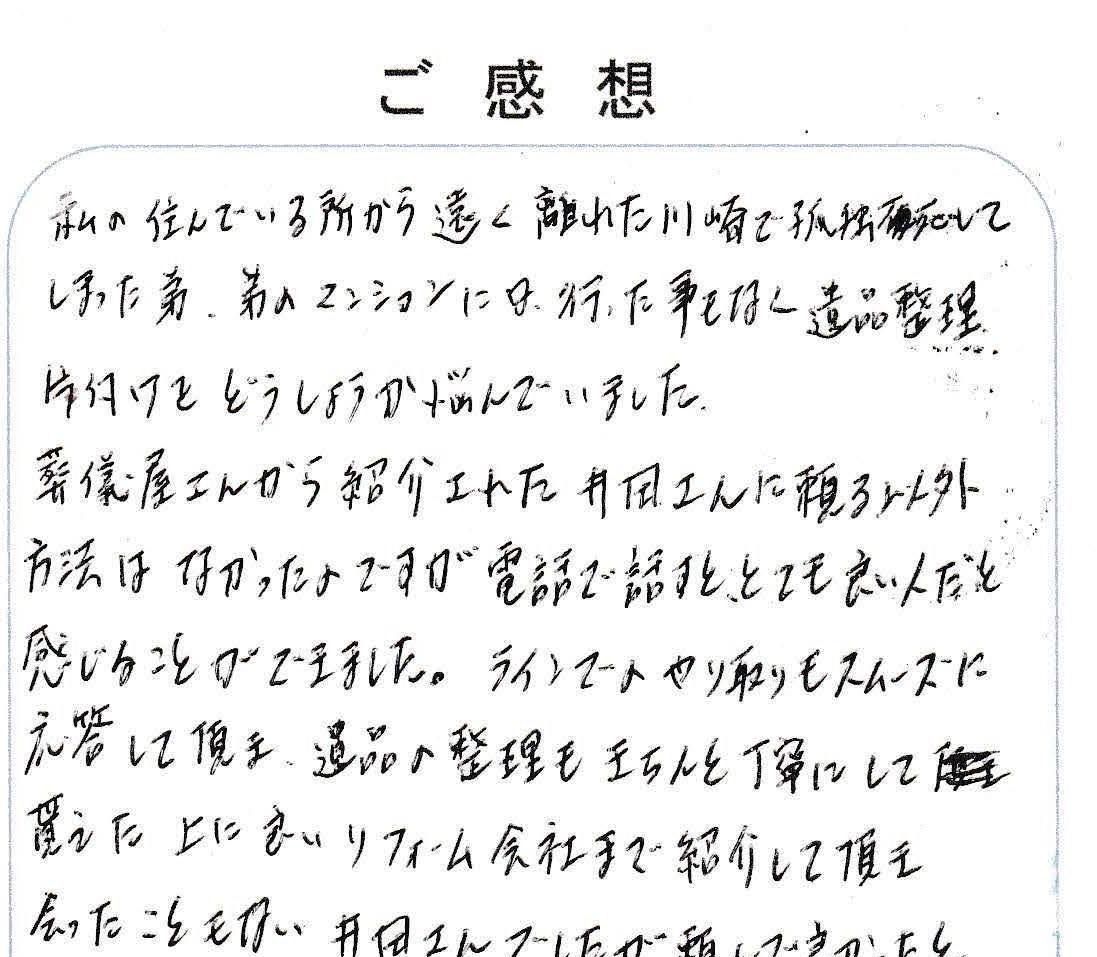 ご感想
私の住んでいる所から遠く離れた川崎で孤独死して
しまった弟、弟のマンションには、行った事もなく遺品整理
片付けをどうしようか悩んでいました。
葬儀屋さんから紹介された井田さんに頼る以外
方法はなかったのですが電話で話すと、とても良い人だと
感じることができました。ラインでのやり取りもスムーズに
応答して頂き、遺品の整理もきちんと丁寧にして
貰えた上に良いリフォーム会社まで紹介して頂き
会ったこともない井田さんでしたが頼んで良かったと